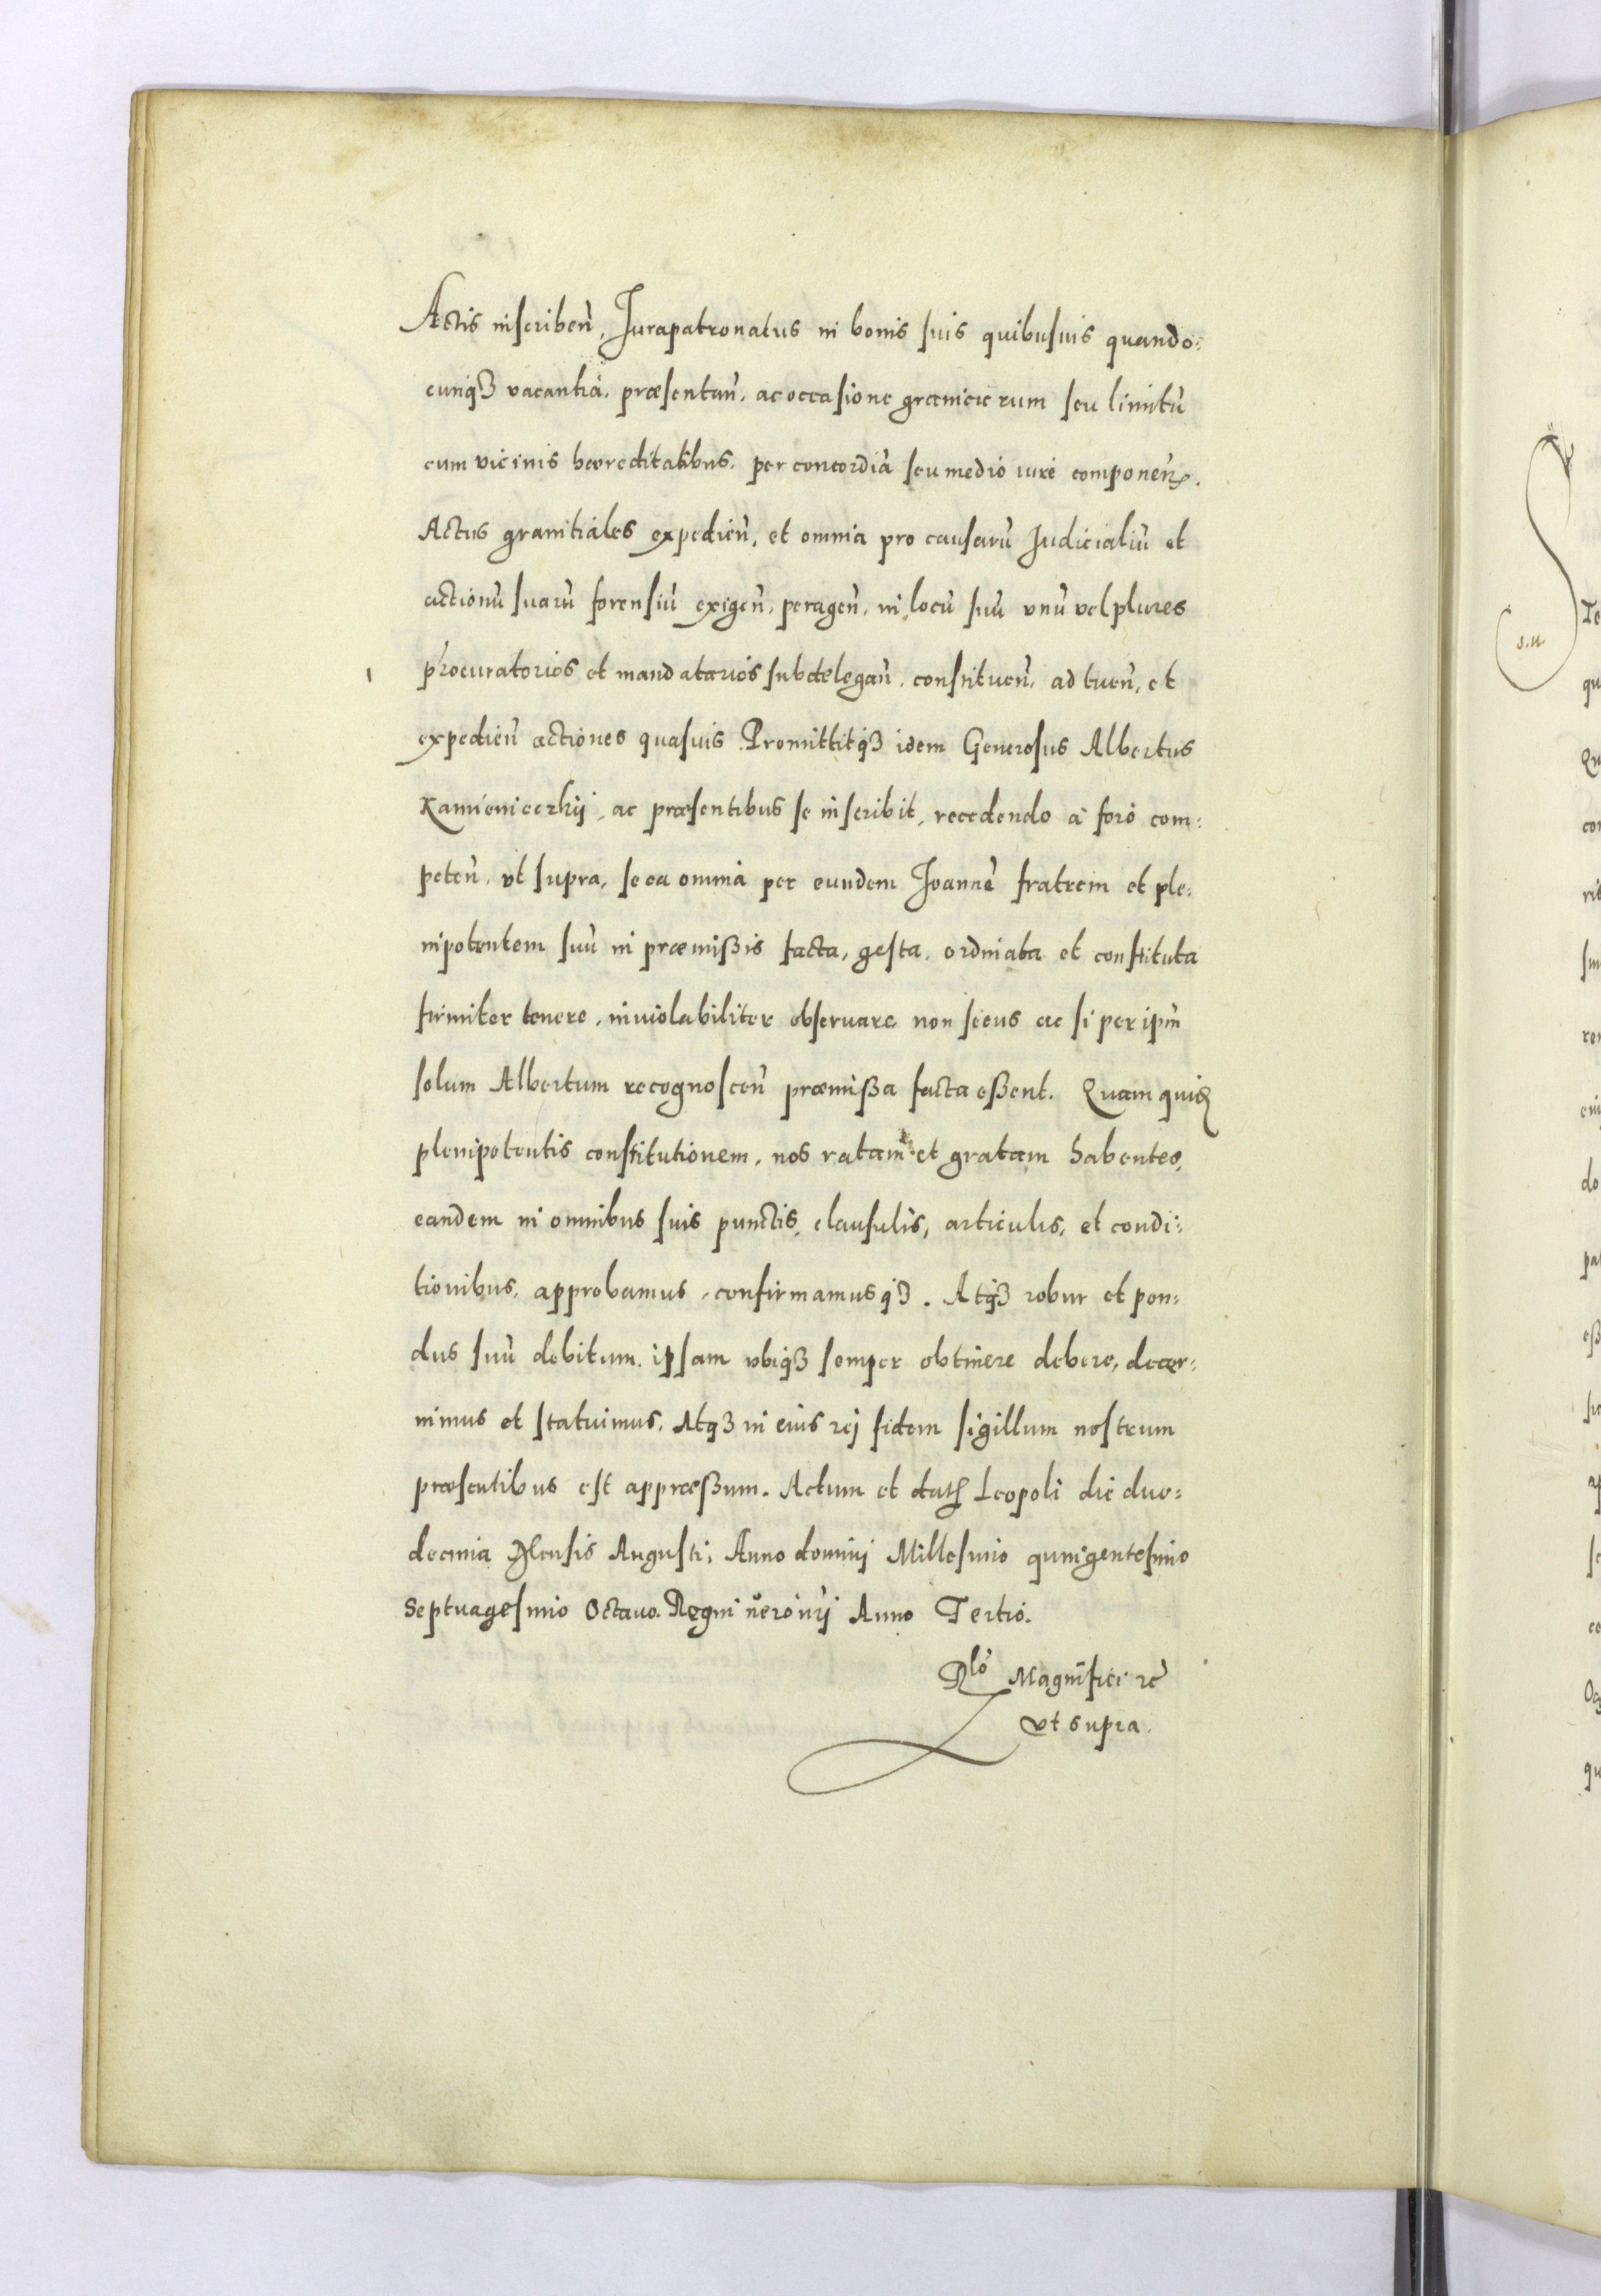 Actis inscribeñ, Jurapatronatus in bonis suis quibusuis quando:
cunq3 vacantia, præsentañ, ac occasione granicierum seu limitũ
cum vicinis hæreditatibus, per concordiã seu medio iure componeñ.
Actus granitiales expedieñ, et omnia pro causarũ Judicialiũ et
actionũ suarũ forensiũ exigeñ, perageñ, in locũ suũ vnũ vel plures
procuratorios et mandatarios subdelegañ, constitueñ, ad tueñ, et
expedieñ actiones quasuis Promittitq3 idem Generosus Albertus
Kamienieczkij, ac præsentibus se inscribit, recedendo à foro com:
peteñ, vt supra, se ea omnia per eundem Joannẽ fratrem et ple:
nipotentem suũ in præmißis facta, gesta, ordinata et constituta
firmiter tenere, inuiolabiliter obseruare non secus ac si per ipm̃
solum Albertum recognosceñ præmißa facta eßent. Quam quid
plenipotentis constitutionem, nos ratam et gratam habentes,
eandem in omnibus suis punctis, clausulis, articulis, et condi:
tionibus, approbamus, confirmamusq3. Atq3 robur et pon:
dus suũ debitum, ipsam vbiq3 semper obtinere debere, decer:
nimus et statuimus. Atq3 in eius rej fidem sigillum nostrum
præsentibus est appræßum. Actum et dat Leopoli die duo:
decima Mensis Augusti, Anno dominj Millesimo quingentesimo
Septuagesimo Octauo. Regni ñerō nrj Anno Tertio.
Rlõ Magnifici rẽ
vt supra.
s.n